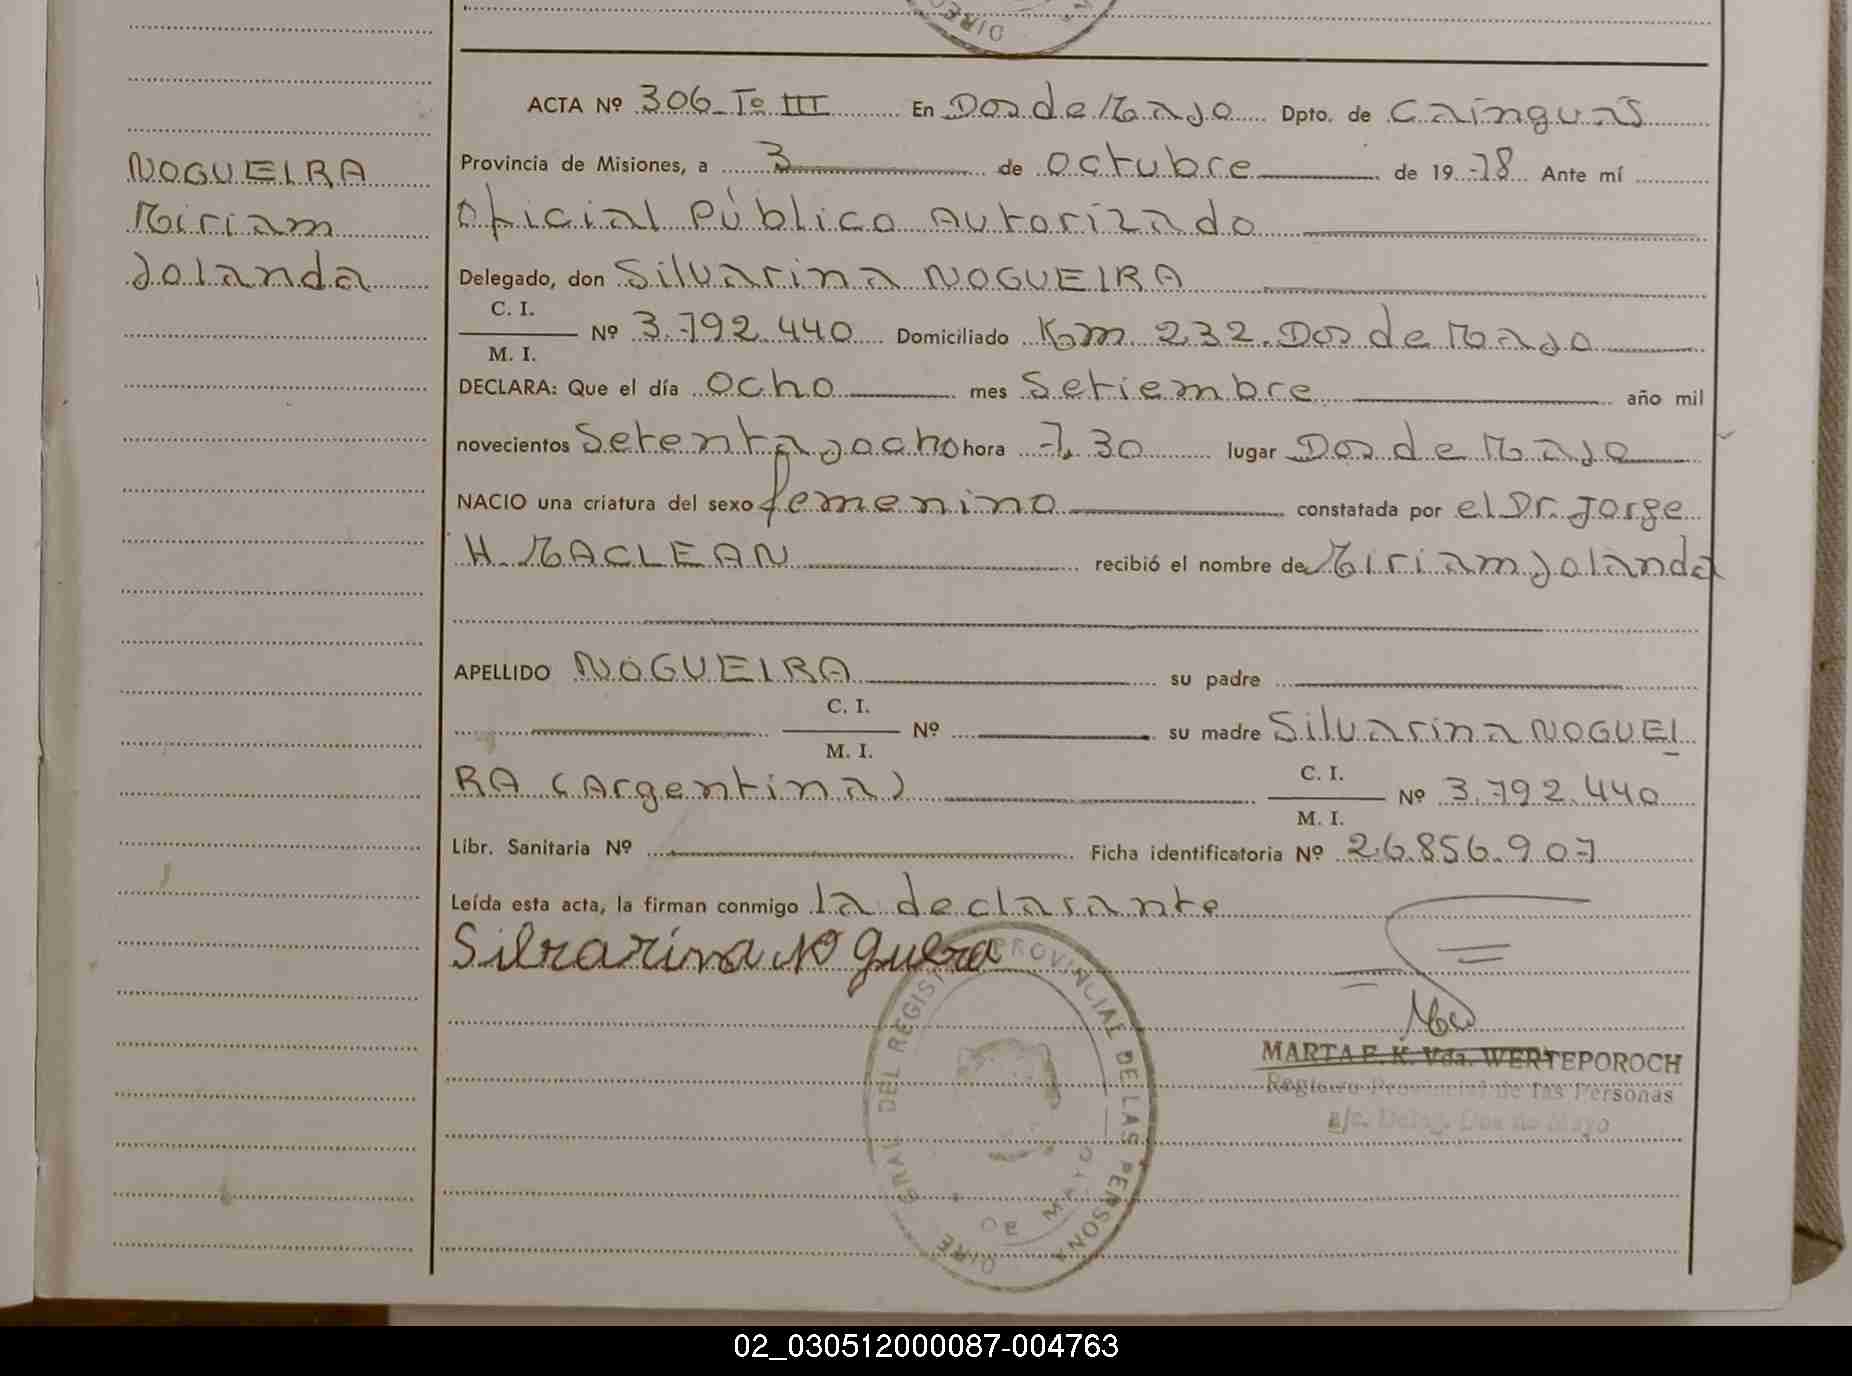 DIREC
ACTA Nº 306 Tº III En Dos de Mayo Dpto. de Cainguás
NOGUEIRA
Miriam
Jolanda
Provincia de Misiones, a 3 de octubre de 19 78 Ante mí
Oficial Público Autorizado
Delegado, don Silvarina NOGUEIRA
C. I.
M. I.
Nº 3.792.440 Domiciliado Km 232. Dos de Mayo
DECLARA: Que el día ocho mes Setiembre año mil
novecientos Setenta y ocho hora 7,30 lugar Dos de Mayo
NACIO una criatura del sexo femenino constatada por el Dr. Jorge
H. MACLEAN recibió el nombre de Miriam Jolanda
APELLIDO NOGUEIRA su padre
C. I.
M. I.
Nº su madre Silvarina NOGUEI
RA (Argentina)
C. I.
M. I.
Nº 3.792.440
Libr. Sanitaria Nº Ficha identificatoria Nº 26.856.907
Leída esta acta, la firman conmigo la declarante
Silvarina Noguera
MARTA E. K. Vda. WERTEPOROCH
Registro Provincial de las Personas
a/c. Deleg. Dos de Mayo
DIRE GRAL DEL REGIS PROVINCIAL DE LAS PERSONA
DE MAYO
02_030512000087-004763